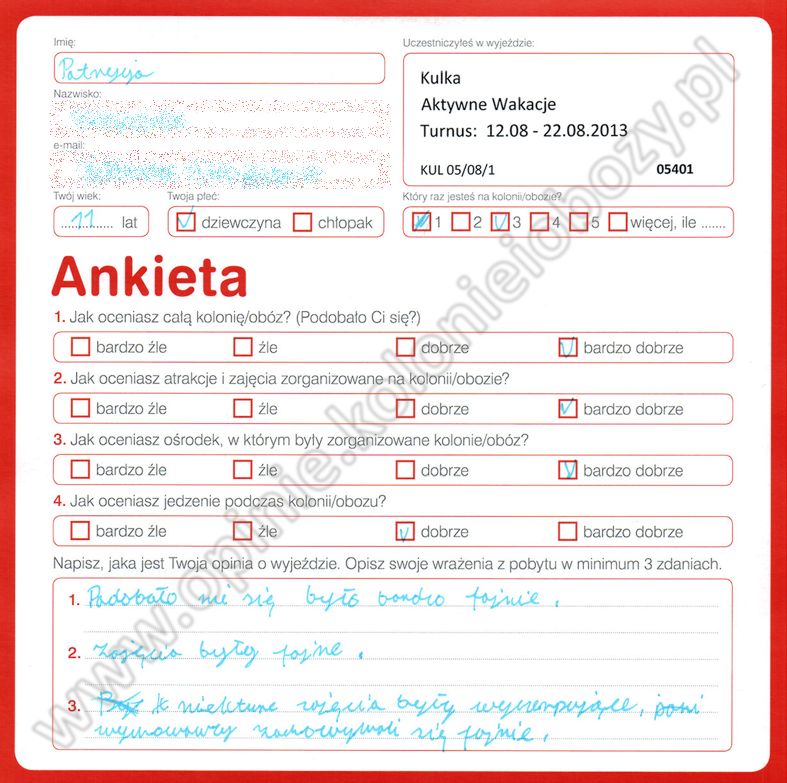 Imię:
Patrycja
Nazwisko:
e-mail:
Twój wiek:
11 lat
Twoja płeć:
dziewczyna chłopak
Uczestniczyłeś w wyjeździe:
Kulka
Aktywne Wakacje
Turnus: 12.08 - 22.08.2013
KUL 05/08/1 05401
Który raz jesteś na kolonii/obozie?
1 2 3 4 5 więcej, ile .......
Ankieta
1. Jak oceniasz całą kolonię/obóz? (Podobało Ci się?)
bardzo źle źle dobrze bardzo dobrze
2. Jak oceniasz atrakcje i zajęcia zorganizowane na kolonii/obozie?
bardzo źle źle dobrze bardzo dobrze
3. Jak oceniasz ośrodek, w którym były zorganizowane kolonie/obóz?
bardzo źle źle dobrze bardzo dobrze
4. Jak oceniasz jedzenie podczas kolonii/obozu?
bardzo źle źle dobrze bardzo dobrze
Napisz, jaka jest Twoja opinia o wyjeździe. Opisz swoje wrażenia z pobytu w minimum 3 zdaniach.
1. Podobało mi się było bardzo fajnie.
2. Zajęcia były fajne.
3. niekture zajęcia były wyczerpujące, pani
wyhowawcy zachowywali się fajnie.
www.opinie.kolonieiobozy.pl